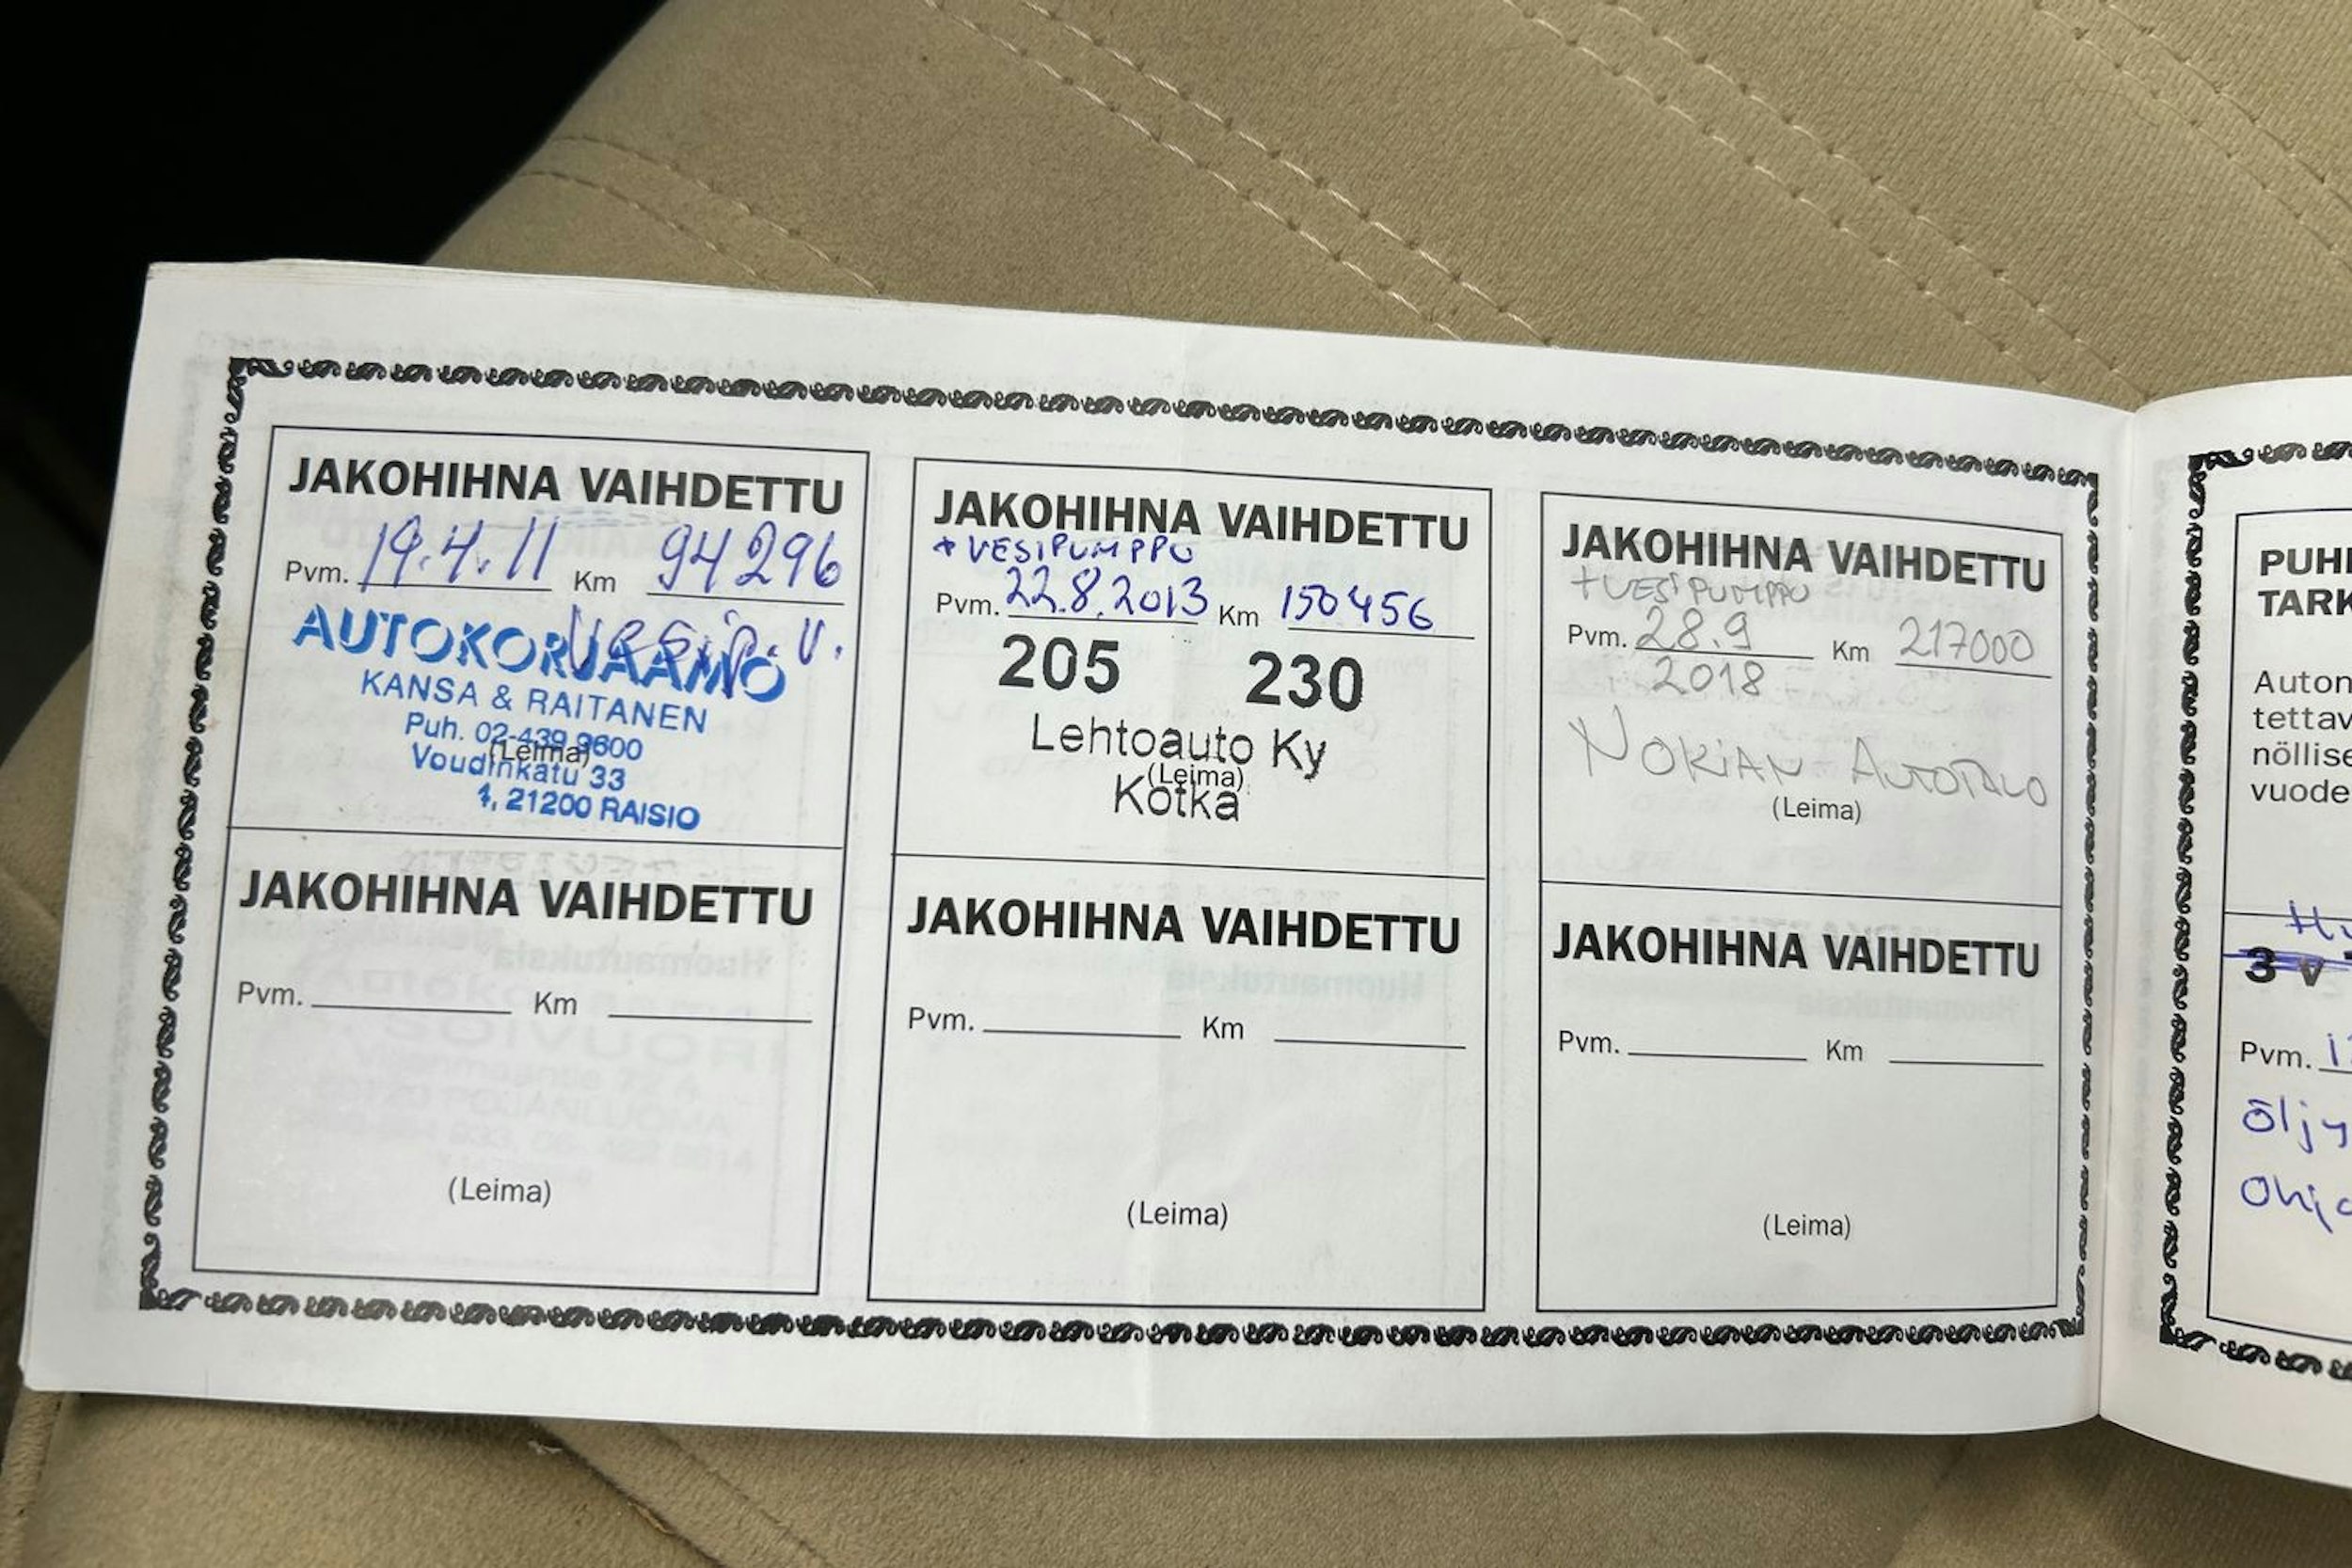 JAKOHIHNA VAIHDETTU
Pvm. 19.4.11 Km 94296
Vesip. V.
AUTOKORJAAMO
KANSA & RAITANEN
Puh. 02-439 9600
(Leima)
Voudinkatu 33
21200 RAISIO
JAKOHIHNA VAIHDETTU
+ VESIPUMPPU
Pvm. 22.8.2013 Km 150456
205 230
Lehtoauto Ky
(Leima)
Kotka
JAKOHIHNA VAIHDETTU
+ VESIPUMPPU
Pvm. 28.9 Km 217000
2018
NOKIAN AUTOTALO
(Leima)
JAKOHIHNA VAIHDETTU
Pvm. Km
(Leima)
JAKOHIHNA VAIHDETTU
Pvm. Km
(Leima)
JAKOHIHNA VAIHDETTU
Pvm. Km
(Leima)
PUH
TARK
Auton
tettav
nöllise
vuode
3 v
Pvm.
Öljy
Ohja